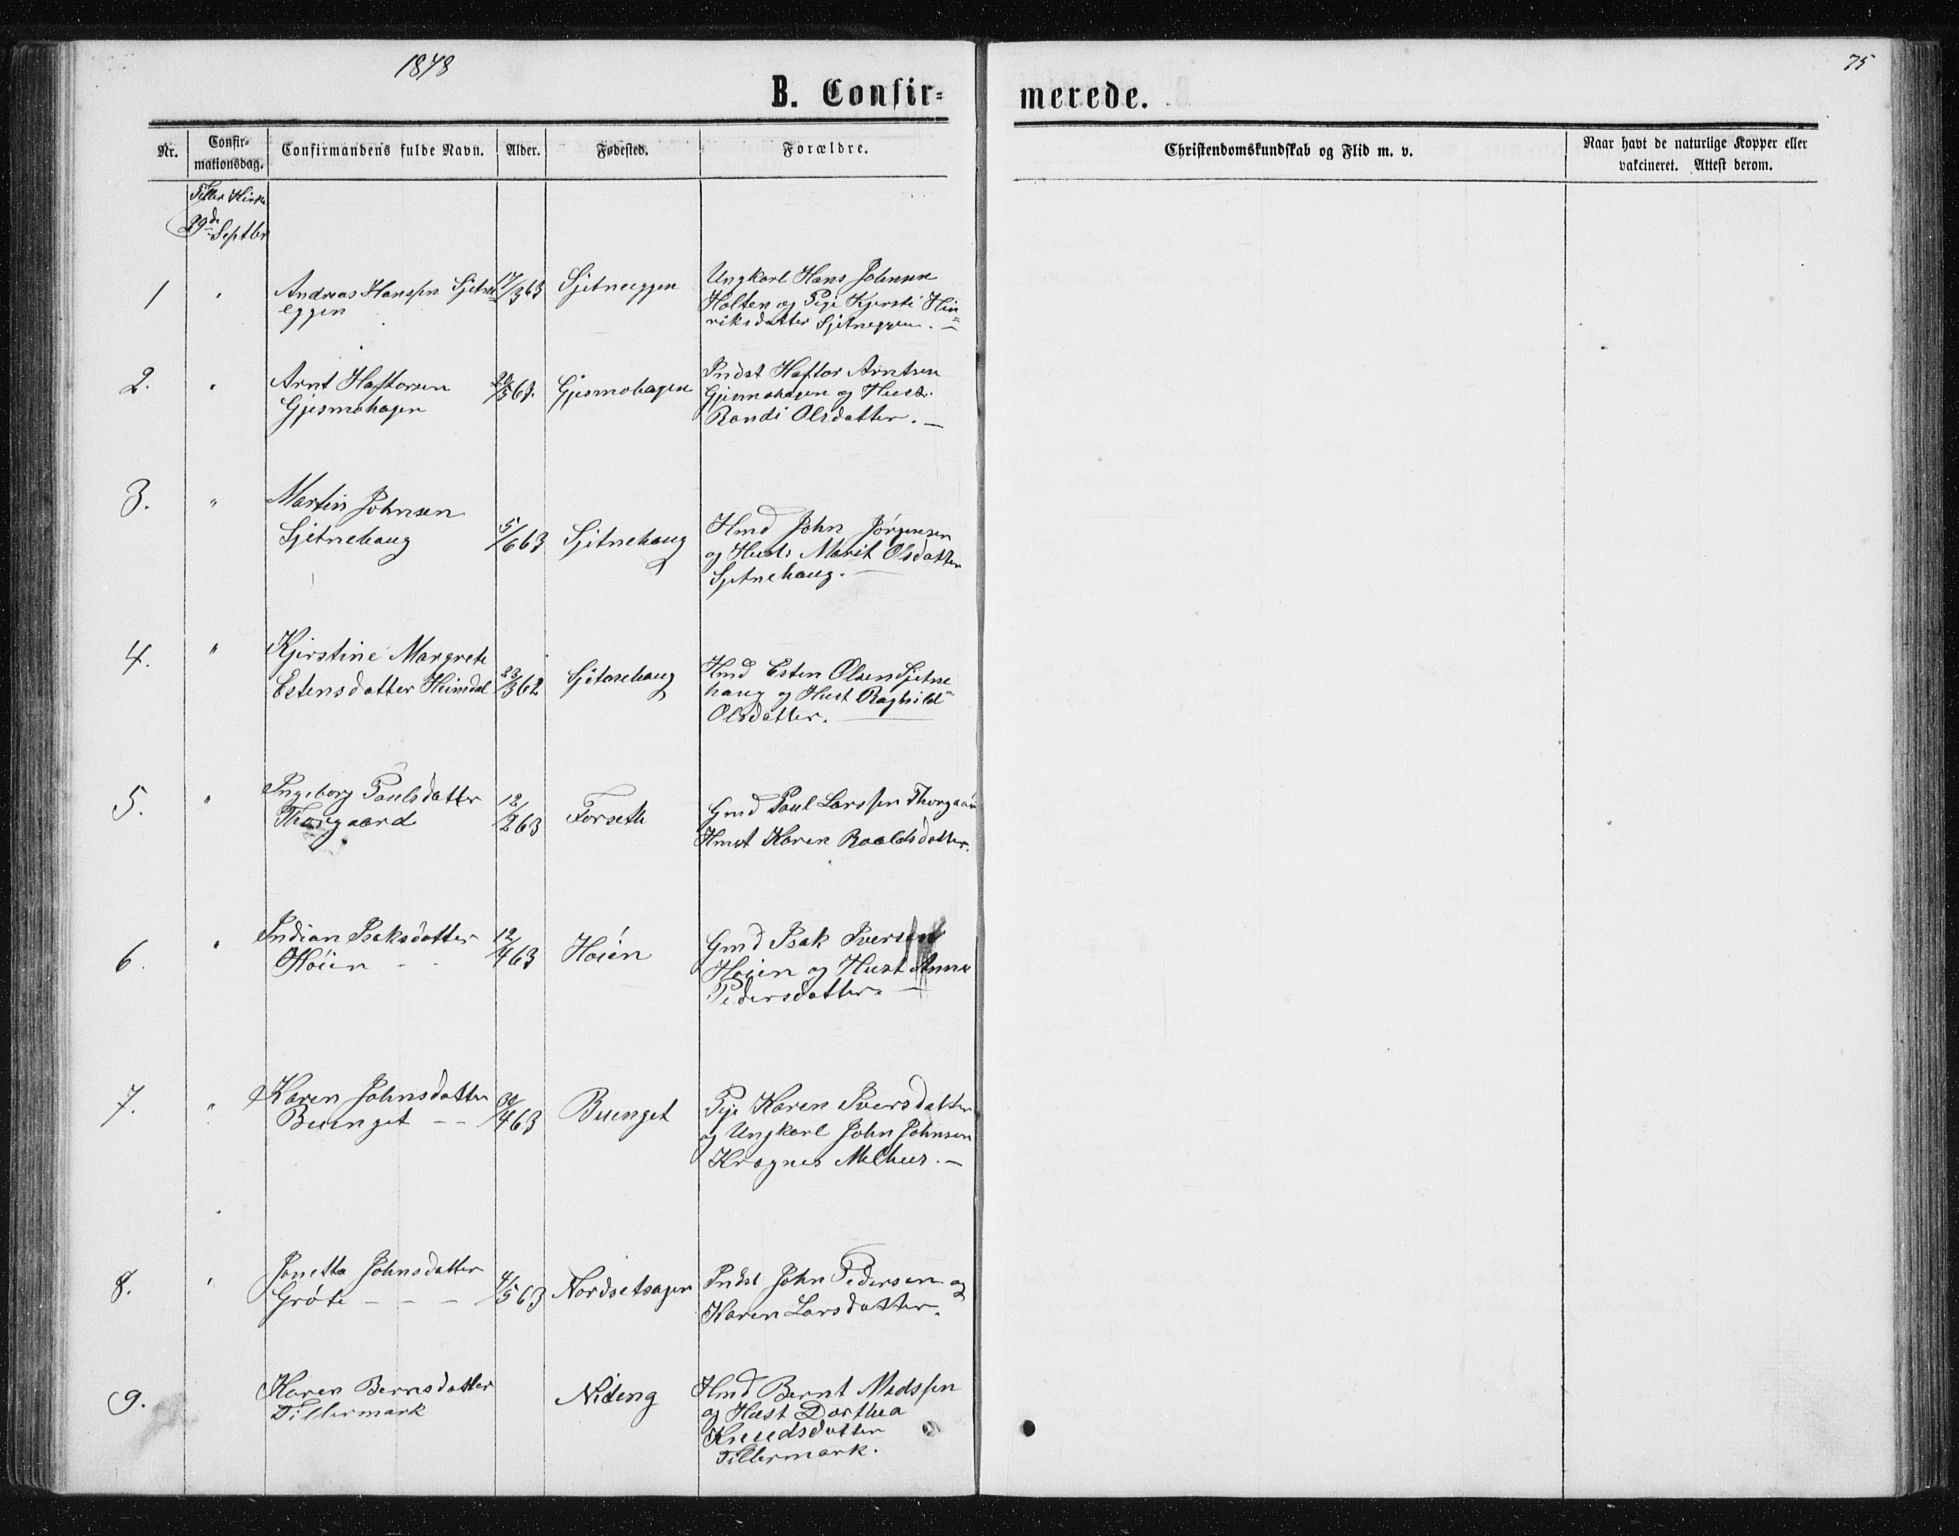 1878
75
B. Confir-
merede.
Nr.
Confir-
mationsdag.
Confirmandens fulde Navn.
Alder.
Fødested.
Forældre.
Christendomskundskab og Flid m. v.
Naar havt de naturlige Kopper eller
vakcineret. Attest derom.
Tiller Kirke
29de Septbr
1
"
Andreas Hanssen Sjetne
eggen
17/3 63
Sjetneeggen
Ungkarl Hans Johnsen
Holten og Pige Kjersti Hin-
riksdatter Sjetneggen. —
2.
"
Arnt Haftorsen
Gjesmohagen
/5 63.
Gjesmohagen
Indst Haftor Arntsen
Gjesmohagen og Hust.
Randi Olsdatter. —
3.
"
Martin Johnsen
Sjetnehaug
5/6 63
Sjetnehaug
Hmd John Jørgensen
og Hust: Marit Olsdatter
Sjetnehaug. —
4.
"
Kjerstine Margrete
Estensdatter Heimdal
23/3 62
Sjetnehaug
Hmd Esten Olsen Sjetne
haug og Hust Raghild
Olsdatter. —
5.
"
Ingeborg Paulsdatter
Thorgaard
12/2 63
Forseth
Gmd Paul Larssen Thorgaar
Hust Karen Roaldsdatter.
6.
"
Indian Isaksdatter
Høien - -
12/4 63
Høien
Gmd Isak Iversen
Høien og Hust Anne
Pedersdatter. —
7.
"
Karen Johnsdatter
Buenget - -
30/4 63
Buenget
Pige Karen Iversdatter
og Ungkarl John Johnsen
Kragnes Melhus. —
8.
"
Jonetta Johnsdatter
Grøte - - -
4/5 63
Nordsetsagen
Indst John Pedersen og
Karen Larsdatter.
9.
Karen Bernsdatter
Tillermark
Nideng
Hmd Bernt Madssen
og Hust Dorthea
Knudsdatter
Tillermark.